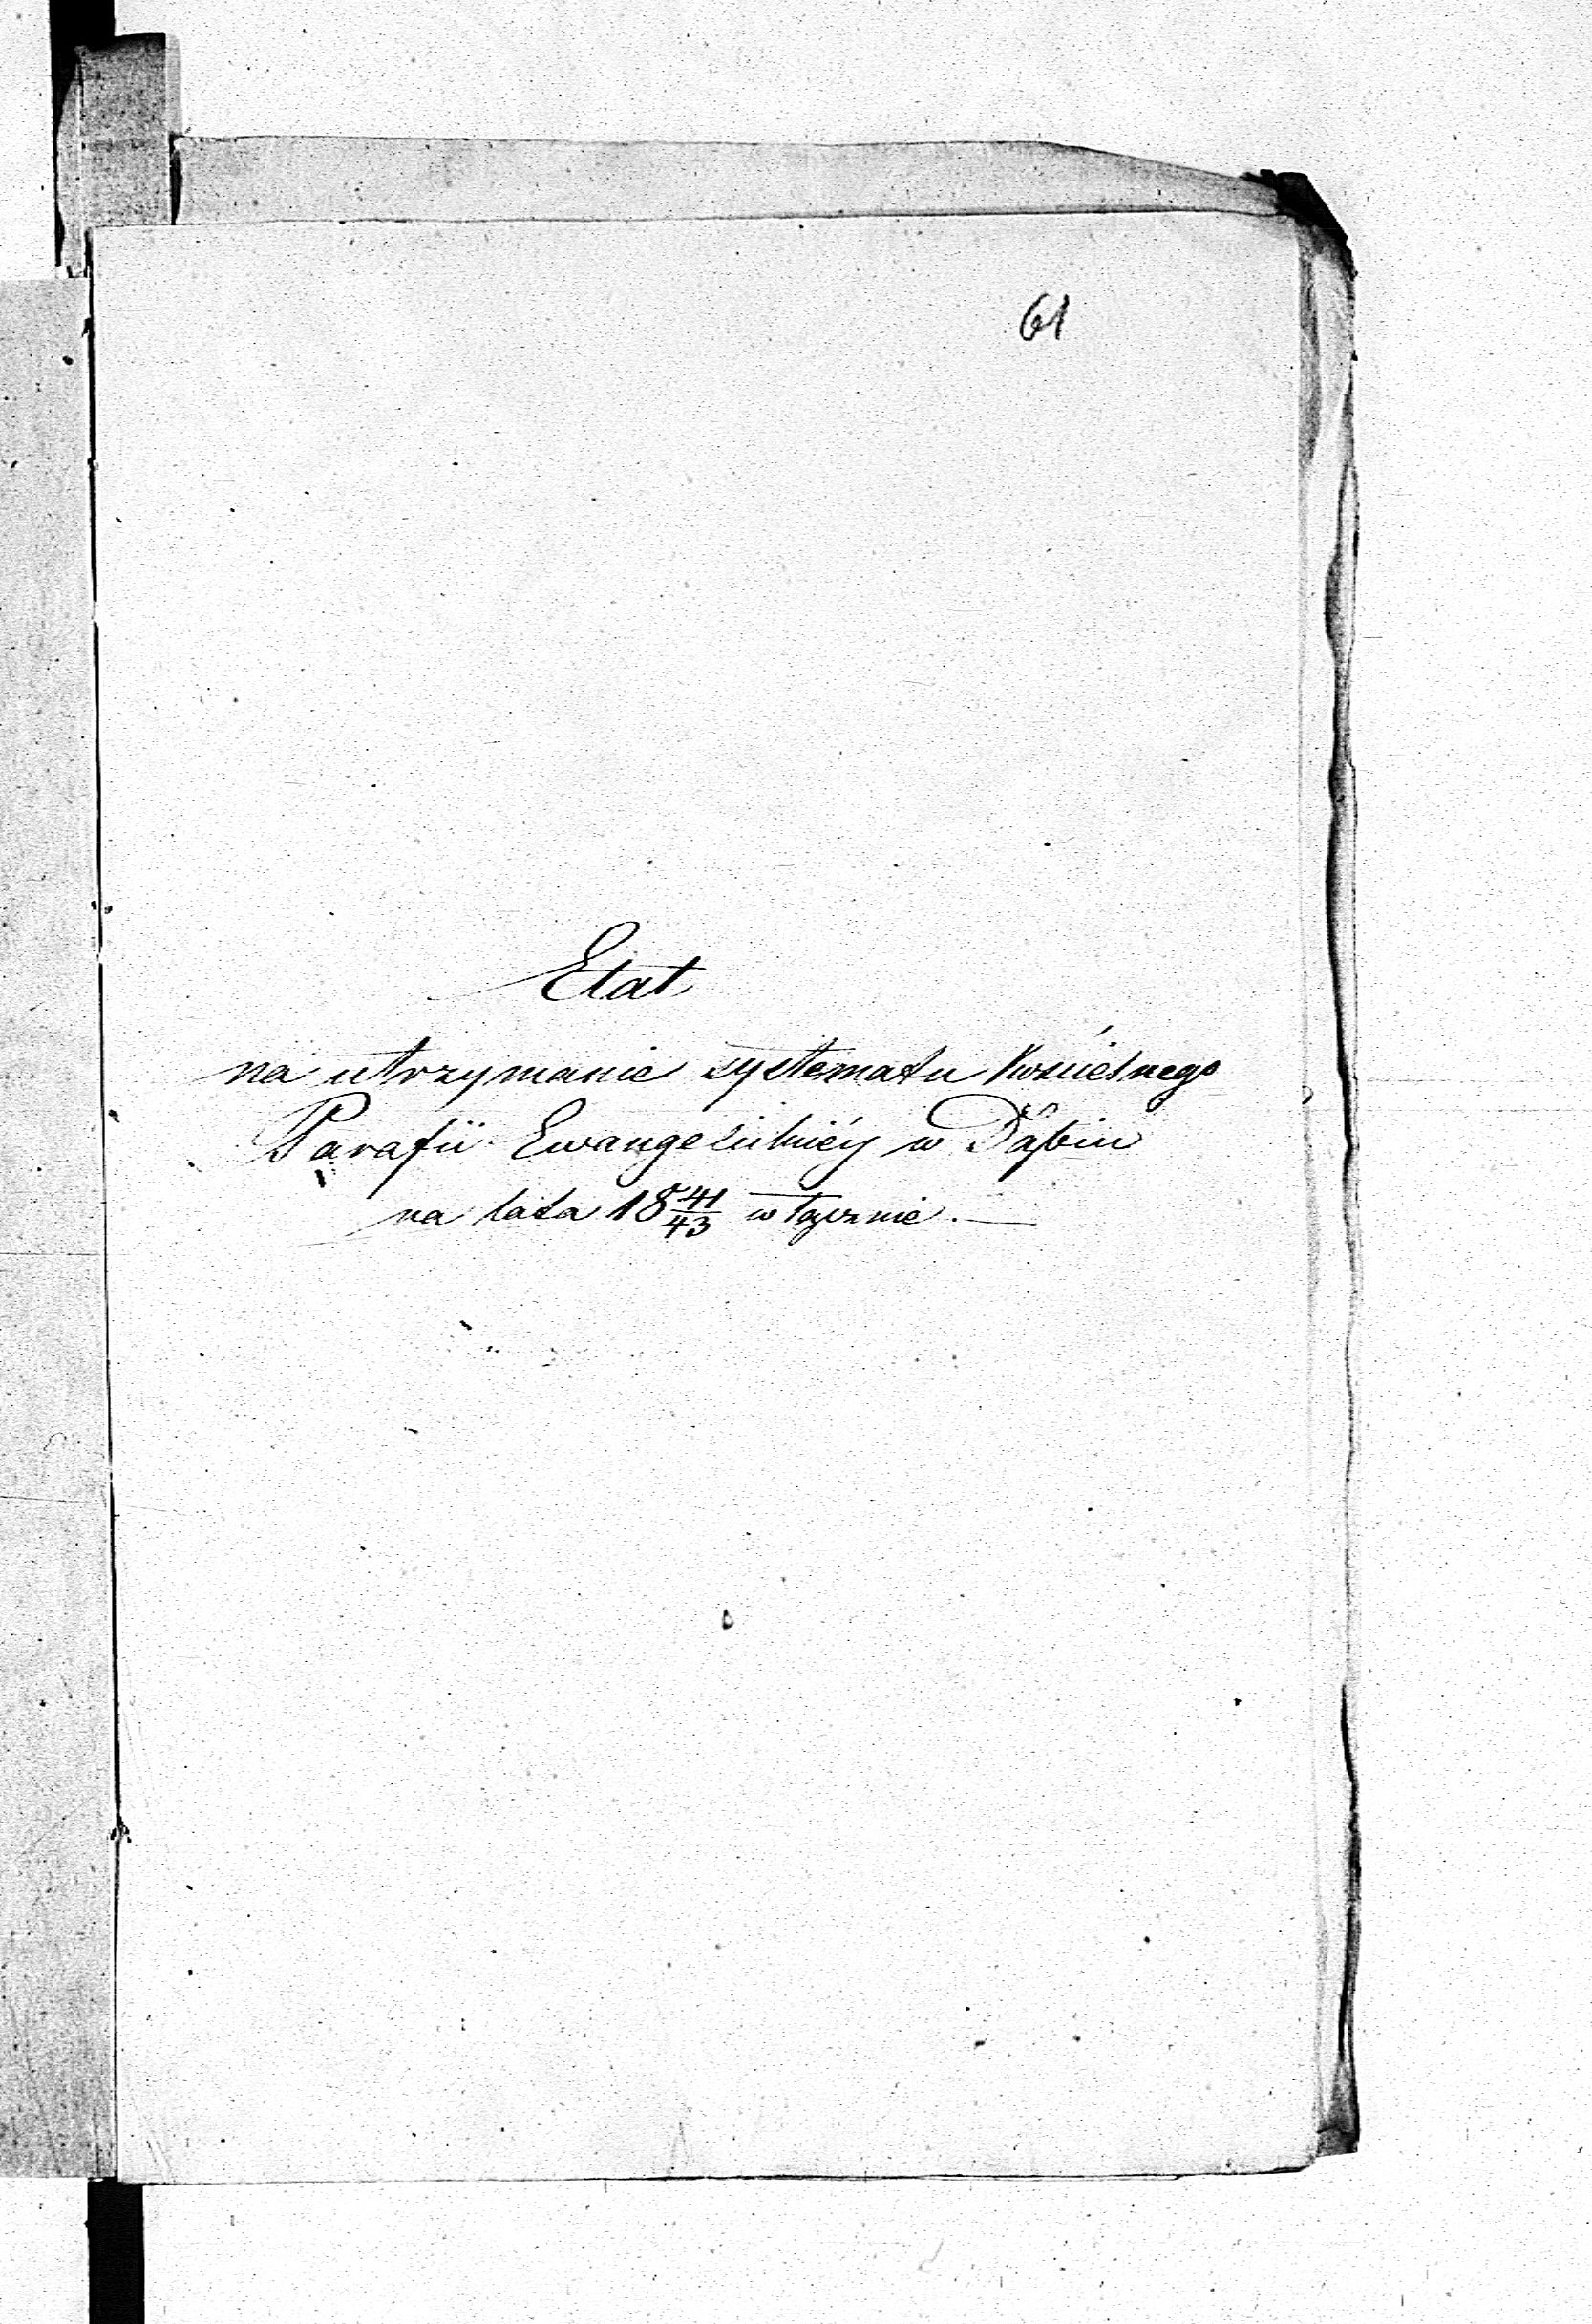 61
Etat
na utrzymanie systematu Kościelnego
Parafii Ewangelickiéy w Dąbiu
na lata 18 41/43 włącznie. —